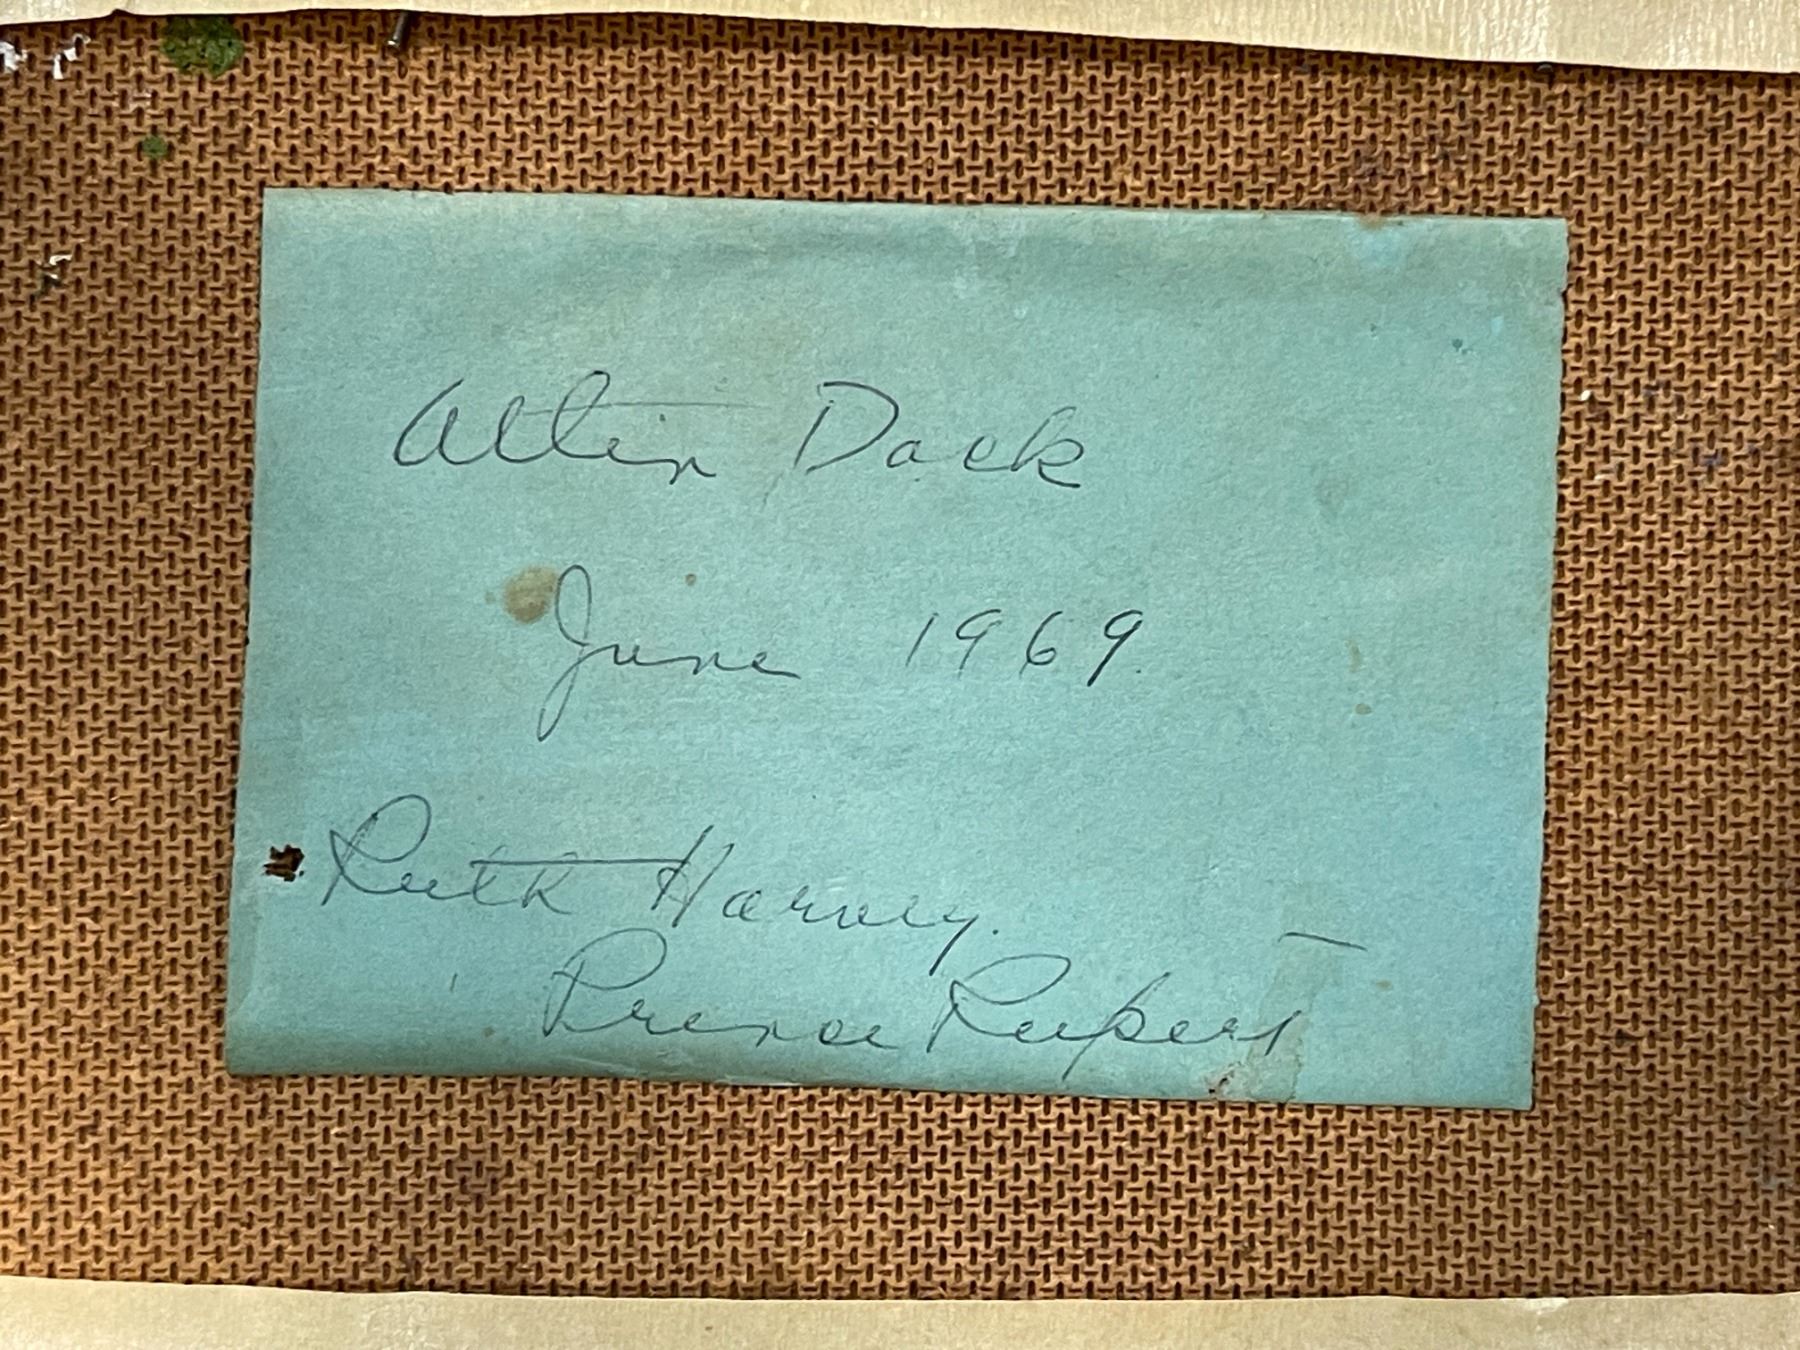 Atlin Dock
June 1969.
Ruth Harvey.
Prince Rupert